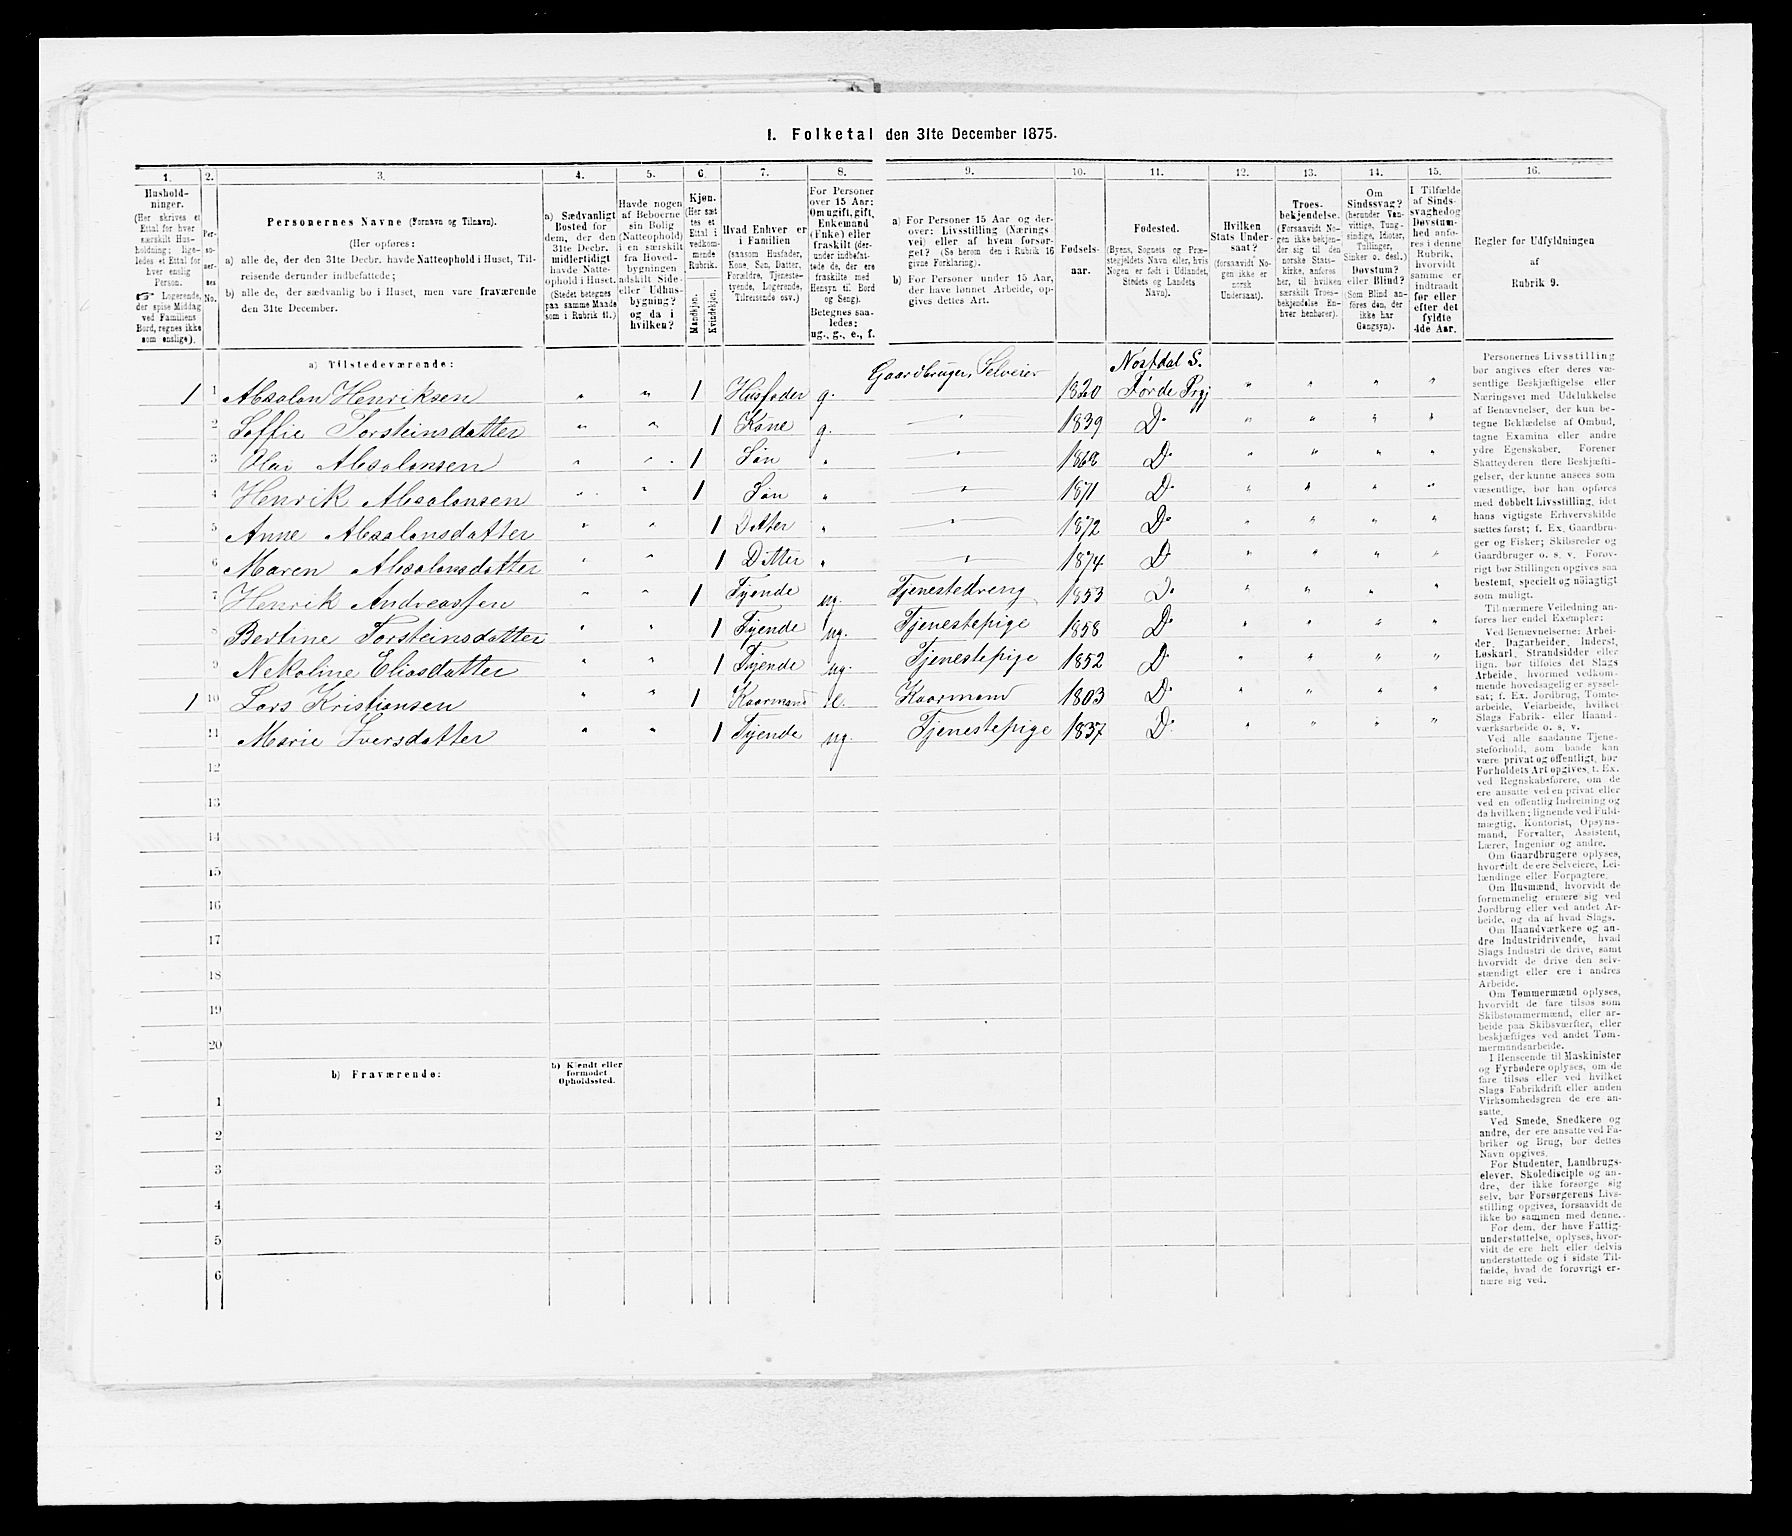 I. Folketal den 31te December 1875.
1. 2. 3. 4. 5. 6. 7. 8. 9. 10. 11. 12. 13. 14. 15. 16.
Hushold-
ninger.
(Her skrives et
Ettal for hver
særskilt Hus-
holdning; lige-
ledes et Ettal for
hver enslig
Person.
☞ Logerende,
der spise Middag
ved Familiens
Bord, regnes ikke
som enslige).
Per-
so-
ner-
nes
No.
Personernes Navne (Fornavn og Tilnavn).
(Her opføres:
a) alle de, der den 31te Decbr. havde Natteophold i Huset, Til-
reisende derunder indbefattede;
b) alle de, der sædvanlig bo i Huset, men vare fraværende
den 31te December.
a) Sædvanligt
Bosted for
dem, der den
31te Decbr.
midlertidigt
havde Natte-
ophold i Huset.
(Stedet betegnes
paa samme Maade
som i Rubrik 11.)
Havde nogen
af Beboerne
sin Bolig
(Natteophold)
i en særskilt
fra Hoved-
bygningen
adskilt Side-
eller Udhus-
bygning?
og da i
hvilken?
Kjøn.
(Her sæt-
tes et
Ettal i
vedkom-
mende
Rubrik.
Mandkjøn.
Kvindekjøn.
Hvad Enhver er
i Familien
(saasom Husfader,
Kone, Søn, Datter,
Forældre, Tjeneste-
tyende, Logerende,
Tilreisende osv.)
For Personer
over 15 Aar:
Om ugift, gift,
Enkemand
(Enke) eller
fraskilt (der-
under indbefat-
tede de, der ere
fraskilte med
Hensyn til Bord
og Seng).
Betegnes saa-
ledes:
ug., g., e., f.
a) For Personer 15 Aar og der-
over: Livsstilling (Nærings-
vei) eller af hvem forsør-
get? (Se herom den i Rubrik 16
givne Forklaring).
b) For Personer under 15 Aar,
der have lønnet Arbeide, op-
gives dettes Art.
Fødsels-
aar.
Fødested.
(Byens, Sognets og Præ-
stegjeldets Navn eller, hvis
Nogen er født i Udlandet,
Stedets og Landets
Navn).
Hvilken
Stats Under-
saat?
(forsaavidt No-
gen ikke er
norsk
Undersaat).
Troes-
bekjendelse.
(Forsaavidt No-
gen ikke bekjen-
der sig til den
norske Stats-
kirke, anføres
her, til hvilken
særskilt Troes-
bekjendelse En-
hver henhører).
Om
Sindssvag?
(herunder Van-
vittige, Tung-
sindige, Idioter,
Tullinger,
Sinker o. desl.)
Døvstum?
eller Blind?
(Som Blind an-
føres den, der
ikke har
Gangsyn).
I Tilfælde
af Sinds-
svaghed og
Døvstum-
hed anfø-
res i denne
Rubrik,
hvorvidt
samme er
indtraadt
før eller
efter det
fyldte
4de Aar.
Regler for Udfyldningen
af
Rubrik 9.
a) Tilstedeværende: Gaardbruger, Selveier Nøstdal S.
1 1 Absalon Henriksen " " 1 Husfader g. 1820 Førde Prgj " " " "
2 Soffie Torsteinsdatter " " 1 Kone g. " 1839 Do " " " "
3 Olai Absalonsen " " 1 Søn " " 1868 Do " " " "
4 Henrik Absalonsen " " 1 Søn " " 1871 Do " " " "
5 Anne Absalonsdatter " " 1 Datter " " 1872 Do " " " "
6 Maren Absalonsdatter " " 1 Datter " " 1874 Do " " " "
7 Henrik Andreassen " " 1 Tyende ug. Tjenestedreng 1853 Do " " " "
8 Bertine Torsteinsdatter " " 1 Tyende ug. Tjenestepige 1858 Do " " " "
9 Nekoline Eliasdatter " " 1 Tyende ug. Tjenestepige 1852 Do " " " "
1 10 Lars Kristiansen " " 1 Kaarmand e. Kaarmand 1803 Do " " " "
11 Marie Iversdatter " " 1 Tyende ug. Tjenestepige 1837 Do " " " "
12
13
14
15
16
17
18
19
20
b) Fraværende:
b) Kjendt eller
formodet
Opholdssted.
1
2
3
4
5
6
Personernes Livsstilling
bør angives efter deres væ-
sentlige Beskjæftigelse eller
Næringsvei med Udelukkelse
af Benævnelser, der kun be-
tegne Beklædelse af Ombud,
tagne Examina eller andre
ydre Egenskaber. Forener
Skatteyderen flere Beskjæfti-
gelser, der kunne ansees som
væsentlige, bør han opføres
med dobbelt Livsstilling, idet
hans vigtigste Erhvervskilde
sættes først; f. Ex. Gaardbru-
ger og Fisker; Skibsreder og
Gaardbruger o. s. v. Forøv-
rigt bør Stillingen opgives saa
bestemt, specielt og nøiagtigt
som muligt.
Til nærmere Veiledning an-
føres her endel Exempler:
Ved Benævnelserne: Arbei-
der, Dagarbeider, Inderst,
Løskarl, Strandsidder eller
lign. bør tilføies det Slags
Arbeide, hvormed vedkom-
mende hovedsagelig er syssel-
sat; f. Ex. Jordbrug, Tomte-
arbeide, Veiarbeide, hvilket
Slags Fabrik- eller Haand-
værksarbeide o. s. v.
Ved alle saadanne Tjene-
steforhold, som baade kan
være privat og offentligt, bør
Forholdets Art opgives, f. Ex.
ved Regnskabsførere, om de
ere ansatte ved en privat eller
ved en offentlig Indretning og
da hvilken; lignende ved Fuld-
mægtig, Kontorist, Opsyns-
mand, Forvalter, Assistent,
Lærer, Ingeniør og andre.
Om Gaardbrugere oplyses,
hvorvidt de ere Selveiere, Lei-
lændinge eller Forpagtere.
Om Husmænd, hvorvidt de
fornemmelig ernære sig ved
Jordbrug eller ved andet Ar-
beide, og da af hvad Slags.
Om Haandværkere og an-
dre Industridrivende, hvad
Slags Industri de drive, samt
hvorvidt de drive den selv-
stændigt eller ere i andres
Arbeide.
Om Tømmermænd oplyses,
hvorvidt de fare tilsøs som
Skibstømmermænd, eller ar-
beide paa Skibsværfter, eller
beskjæftiges ved andet Tøm-
mermandsarbeide.
I Henseende til Maskinister
og Fyrbødere oplyses, om de
fare tilsøs eller ved hvilket
Slags Fabrikdrift eller anden
Virksomhedsgren de ere an-
satte.
Ved Smede, Snedkere og
andre, der ere ansatte ved Fa-
briker og Brug, bør dettes
Navn opgives.
For Studenter, Landbrugs-
elever, Skoledisciple og an-
dre, der ikke forsørge sig
selv, bør Forsørgerens Livs-
stilling opgives, forsaavidt de
ikke bo sammen med denne.
For dem, der have Fattig-
understøttelse, oplyses, hvor-
vidt de ere helt eller delvis
understøttede og i sidste Til-
fælde, hvad de forøvrigt er-
nære sig ved.